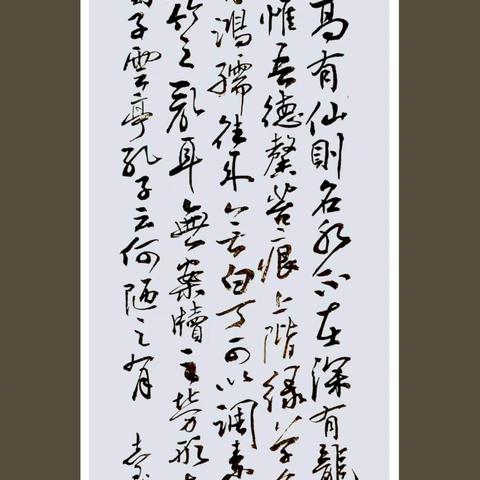 高有仙則名水不在深有龍
惟吾德馨苔痕上階緑草
鴻儒往來無白丁可以調素
竹之亂耳無案牘之勞形
子雲亭孔子云何陋之有